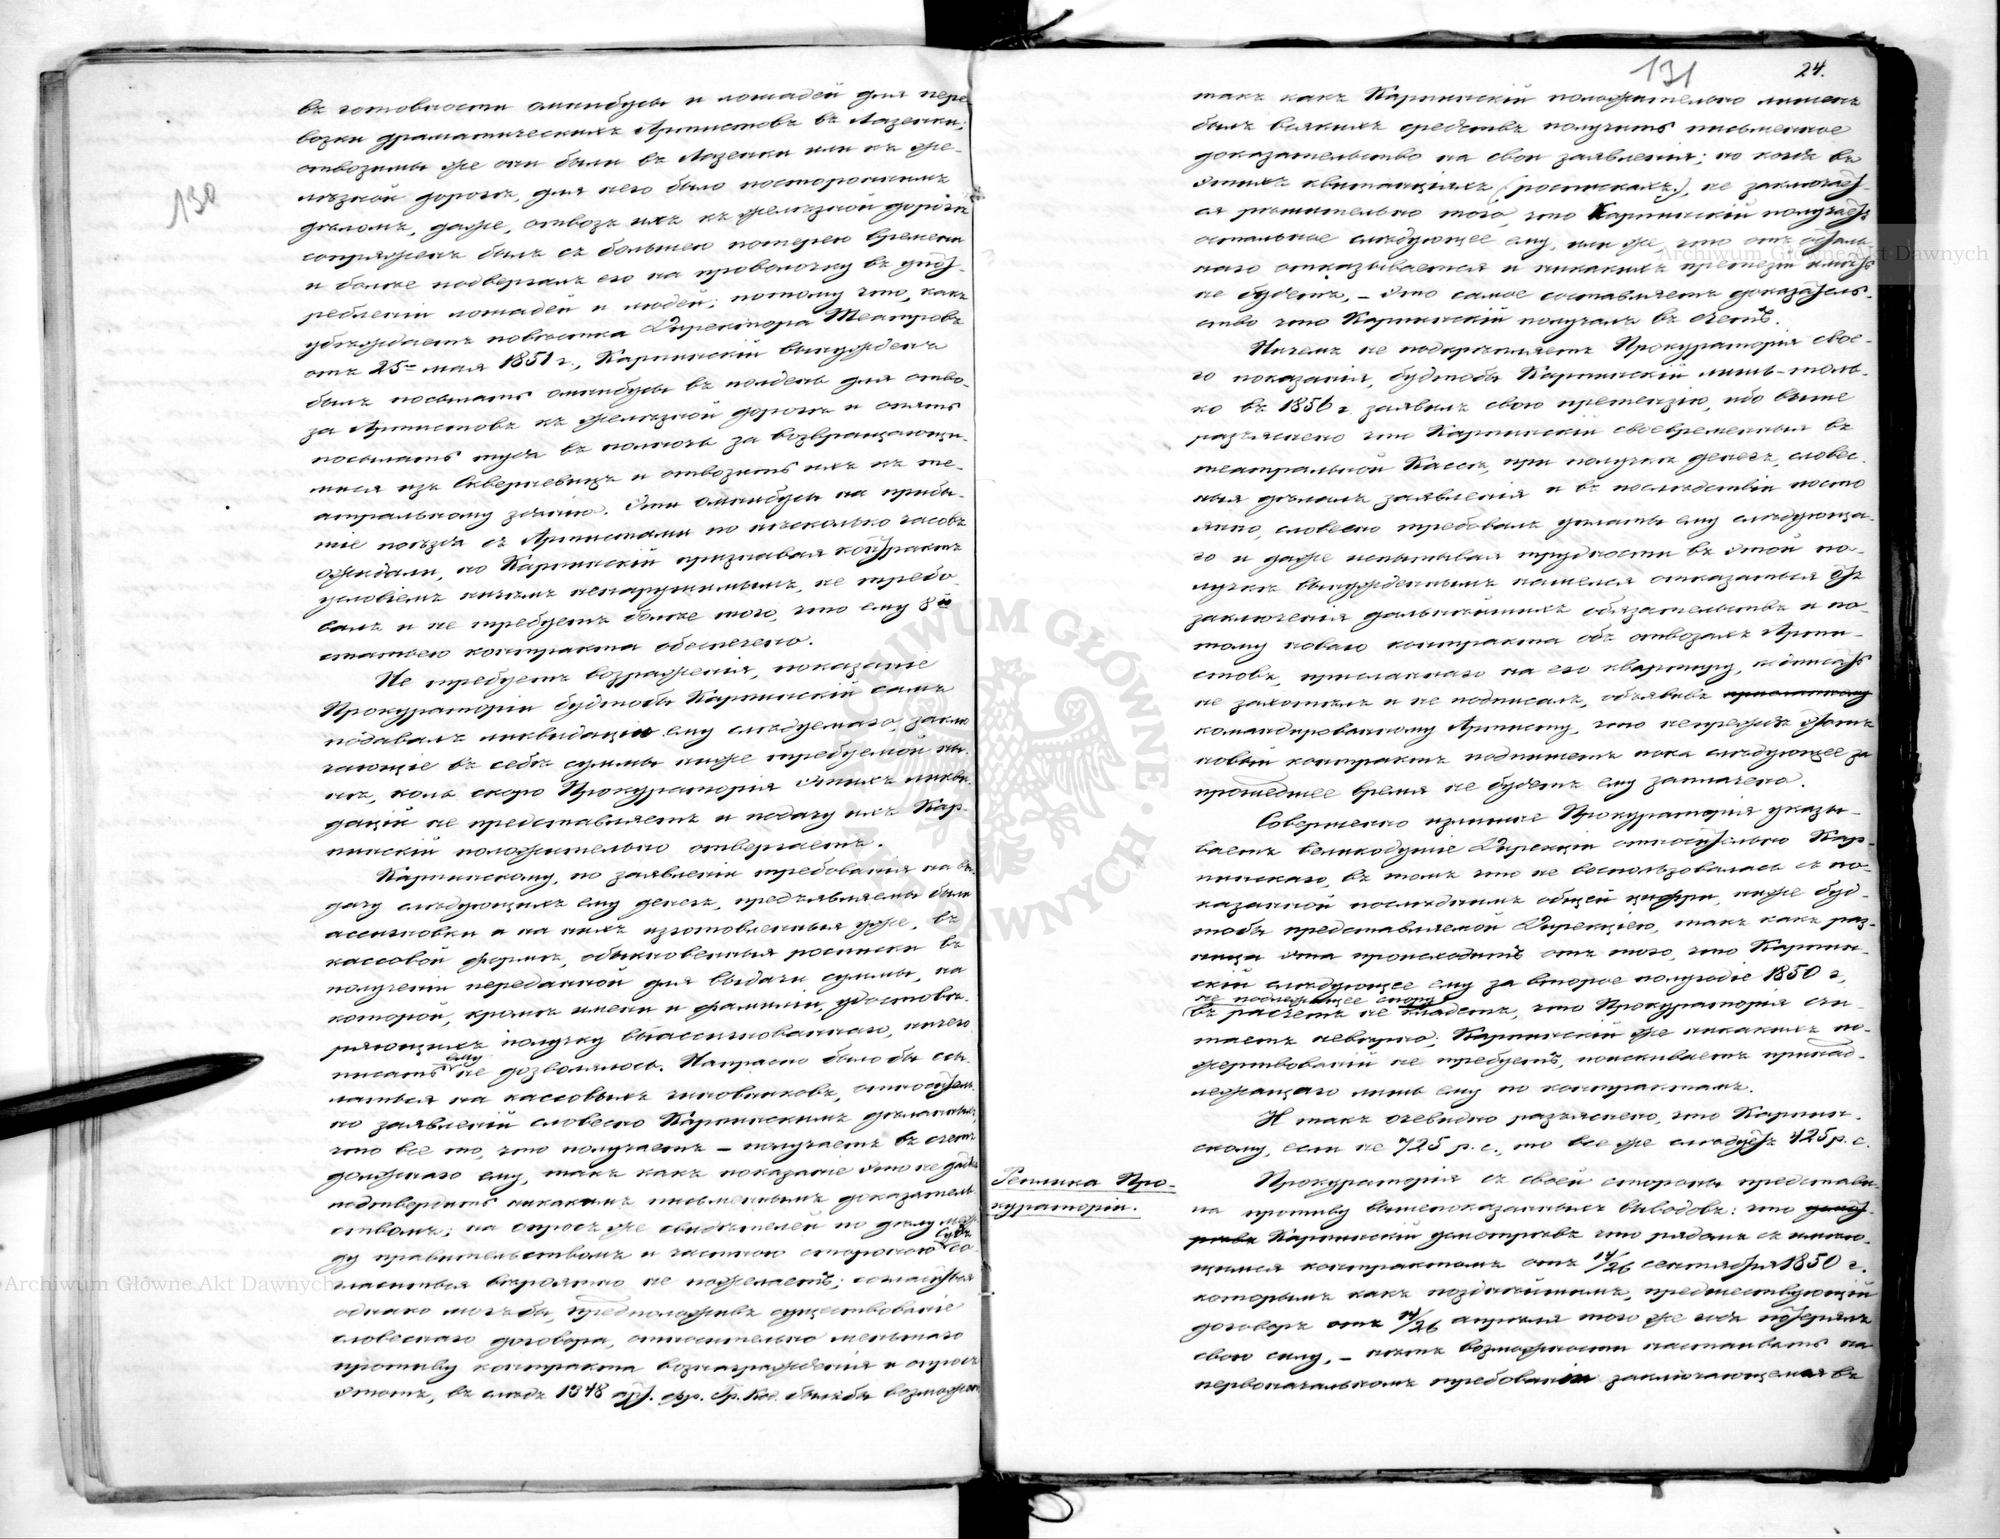 130
въ готовности омнибусы и лошадей для пере-
возки драматическихъ Артистовъ въ Лазенки;
отвозимы же они были въ Лазенки или къ же-
лѣзной дорогѣ, для него было постороннимъ
дѣломъ, даже, отвозъ ихъ къ желѣзной дорогѣ
сопряженъ былъ съ большею потерею времени
и болѣе подвергалъ его на проволочку въ упот-
ребленіи лошадей и людей; потому что, какъ
убѣждаетъ повѣстка Директора Театровъ
отъ 25го мая 1851 г., Карпинскій вынужденъ
былъ посылать омнибусы въ полдень для отво-
за Артистовъ къ желѣзной дорогѣ и опять
посылать туда въ полночь за возвращающи-
мися изъ Скерневицъ и отвозить ихъ къ те-
атральному зданію. Эти омнибусы на прибы-
тіе поѣзда съ Артистами по нѣсколько часовъ
ожидали, но Карпинскій признавая контрактъ
условіемъ ничѣмъ ненарушимымъ, не требо-
валъ и не требуетъ болѣе того, что ему 8й
статьею контракта обеспечено.
Не требуетъ возраженія, показаніе
Прокураторіи будтобы Карпинскій самъ
подавалъ ликвидаціи ему слѣдуемаго, заклю
чающіе въ себѣ суммы ниже требуемой ны-
нѣ, коль скоро Прокураторія этихъ ликви-
дацій не представляетъ и подачу ихъ Кар-
пинскій положительно отвергаетъ.
Карпинскому, по заявленіи требованія на вы-
дачу слѣдующихъ ему денегъ, предъявляемы были
ассигновки а на нихъ изготовленныя уже, въ
кассовой формѣ, обыкновенныя росписки въ
полученіи переданной для выдачи суммы, на
которой, кромѣ имени и фамиліи, удостовѣ-
ряющихъ получку выассигнованнаго, ничего
ему
писать не дозволялось. Напрасно было бы ссы-
латься на кассовыхъ чиновниковъ, относитель-
но заявленій словесно Карпинскимъ дѣланныхъ,
что все то, что получаетъ – получаетъ въ счетъ
должнаго ему, такъ какъ показаніе это не
подтвердить никакимъ письменнымъ доказатель-
ствомъ; на опросъ же свидѣтелей по дѣлу меж-
Судъ
ду правительствомъ и частною стороною со-
гласиться вѣроятно не пожелаетъ; согласиться
однако могъ бы, предположивъ существованіе
словеснаго договора, относительно меньшаго
противу контракта вознагражденія и опросъ
этотъ, въ слѣдъ 1348 арт. фр. Гр. Код. былъ бы возможенъ
131
24.
такъ какъ Карпинскій положительно лишенъ
былъ всякихъ средствъ получить письменное
доказательство на свои заявленія; но когда въ
этихъ квитанціяхъ (роспискахъ), не заключает-
ся рѣшительно того, что Карпинскій получаетъ
остальное слѣдующее ему, или же, что отъ осталь
наго отказывается и никакихъ претензій имѣть
не будетъ, – это самое составляетъ доказатель-
ство что Карпинскій получалъ въ счетъ.
Ничемъ не подкрѣпляетъ Прокураторія свое-
го показанія, будтобы Карпинскій лишь толь-
ко въ 1856 г. заявилъ свою претензію, ибо выше
разъяснено что Карпинскій своевременныя въ
театральной Кассѣ, при получкѣ денегъ, словес-
ныя дѣлалъ заявленія и въ послѣдствіи посто
янно, словесно требовалъ уплаты ему слѣдующа-
го и даже испытывая трудности въ этой по-
лучкѣ вынужденнымъ нашелся отказаться отъ
заключенія дальнѣйшихъ обязательствъ и по-
тому новаго контракта объ отвозахъ Арти-
стовъ, присланнаго на его квартиру, подписать
не захотѣлъ и не подписалъ, объявивъ присланному
командированному Артисту, что непрежде этотъ
новый контрактъ подпишетъ пока слѣдующее за
прошедшее время не будетъ ему заплачено.
Совершенно излишне Прокураторія указы-
ваетъ великодушіе Дирекціи относительно Кар-
пинскаго, въ томъ что не воспользовалась съ по-
казанной послѣднимъ общей цифры, ниже буд-
тобы представляемой Дирекціею, такъ какъ раз-
ница эта происходитъ отъ того, что Карпин-
скій слѣдующее ему за второе полугодіе 1850 г,
не подлежащее спору
въ расчетъ не кладетъ, что Прокураторія счи-
таетъ невѣрно; Карпинскій же никакихъ по-
жертвованій не требуетъ, поискиваетъ принад-
лежащаго лишь ему по контрактамъ.
И такъ очевидно разъяснено, что Карпин-
скому, если не 725 р. с., то все же слѣдуетъ 425 р. с.
Реплика Про-
кураторіи.
Прокураторія съ своей стороны представи-
ла противу вышепоказанныхъ выводовъ: что
Карпинскій усмотрѣвъ что рядомъ съ имѣю-
щимся контрактомъ отъ 14/26 сентября 1850 г.
которымъ какъ позднѣйшимъ, предшествующій
договоръ отъ 14/26 апрѣля того же года потерялъ
свою силу, – нѣтъ возможности настаивать на
первоначальномъ требованіи заключающемся въ
Archiwum Główne Akt Dawnych